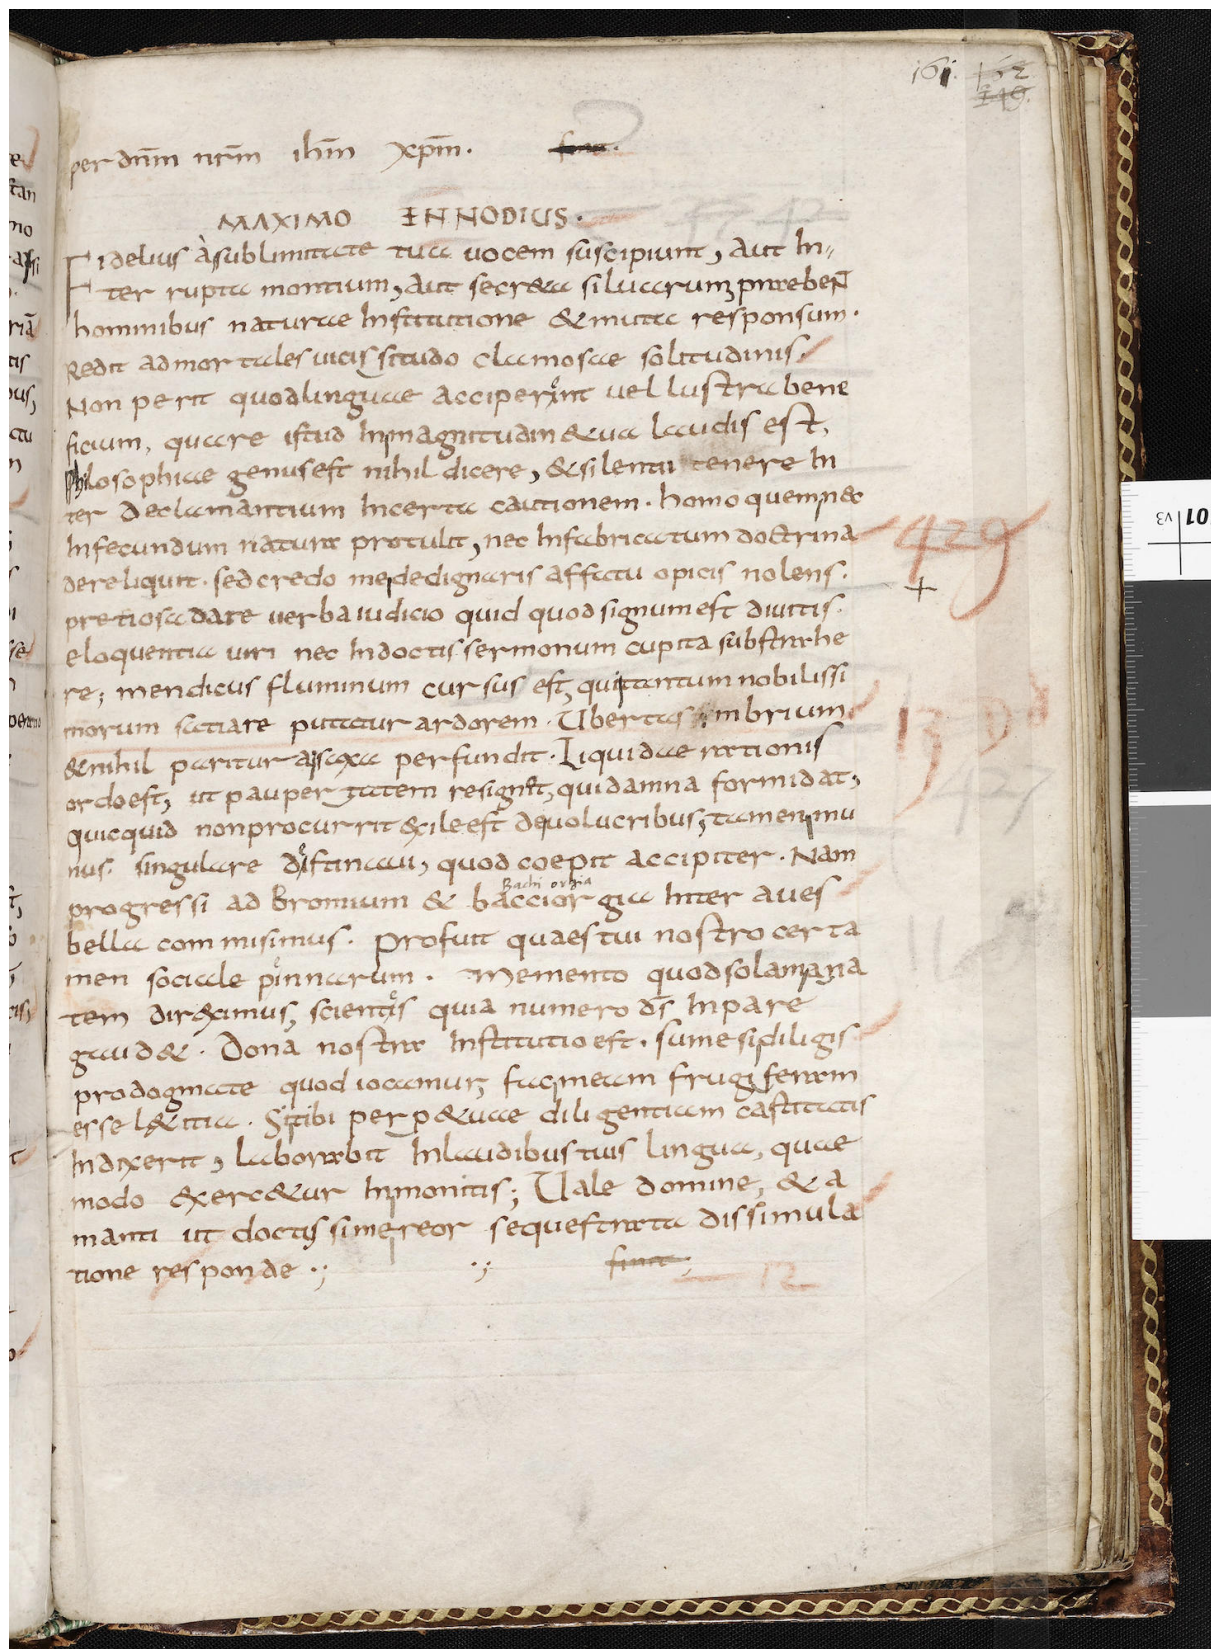 161. 162
149.
per dn̄m nr̄m ihm̄ xpm̄. finit.
MAXIMO ENNODIUS.
Fidelius àsublimitate tua uocem suscipiunt, aut In
ter rupta montium, aut secr&a siluarum praeben̄
hominibus naturae Institutione & muta responsum.
Redit ad mortales uicissitudo clamosae solitudinis.
Non perit quod linguae acciperint uel lustra bene
ficium, quare istud In magnitudin& ua laudis est,
philosophiae genus est nihil dicere, & silentii tenere In
ter declamantium Incerta cautionem. homo quem nec
Infecundum natura protulit, nec Infabricatum doctrina
dereliquit. sed credo me dedignaris affatu opicis nolens.
pretiosa dare uerba iudicio quid quod signum est diuitis.
eloquentia uiri nec Indoctis sermonum cupita substrahe
re; mendicus fluminum cursus est, qui tantum nobilissi
morum satiare putatur ardorem. Ubertas imbrium
& nihil paritura saxa perfundit. Liquidae rationis
ordo est, ut paupertatem resignet, qui damna formidat,
quicquid non procurrit exile est de uolucribus, tamen mu
nus. singulare distinaui, quod coepit accipiter. Nam
Bachi orgia
progressi ad bromium & baccior gia Inter aues
bella commisimus. Profuit quaestui nostro certa
men sociale pinnarum. Memento quod sola magna
tem direximus, scientis quia numero ds̄ Inpare
gaud&. Dona nostra Institutio est. sume si diligis
pro dogmate quod iocamur, fac meam frugiferam
esse l&itia. Si tibi perp&uae diligentiam castitatis
Indixerit, laborabit In laudibus tuis lingua, quae
modo exerc&ur In monitis; Uale domine, & a
manti ut doctissime reor sequestrata dissimula
tione responde .; .; finit;
429
+
13 Dd
427
12